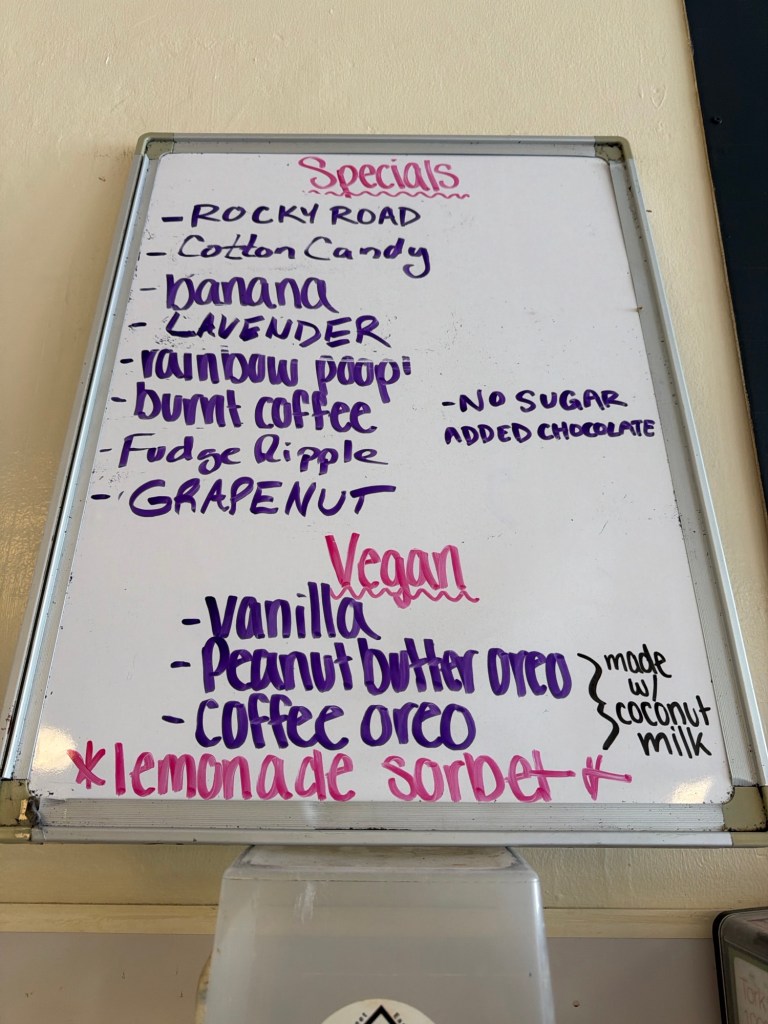 Specials
- ROCKY ROAD
- Cotton Candy
- banana
- LAVENDER
- rainbow poop'
- burnt coffee
- NO SUGAR
ADDED CHOCOLATE
- Fudge Ripple
- GRAPENUT
Vegan
- vanilla
- Peanut butter oreo
- coffee oreo
made
w/
coconut
milk
*lemonade sorbet*